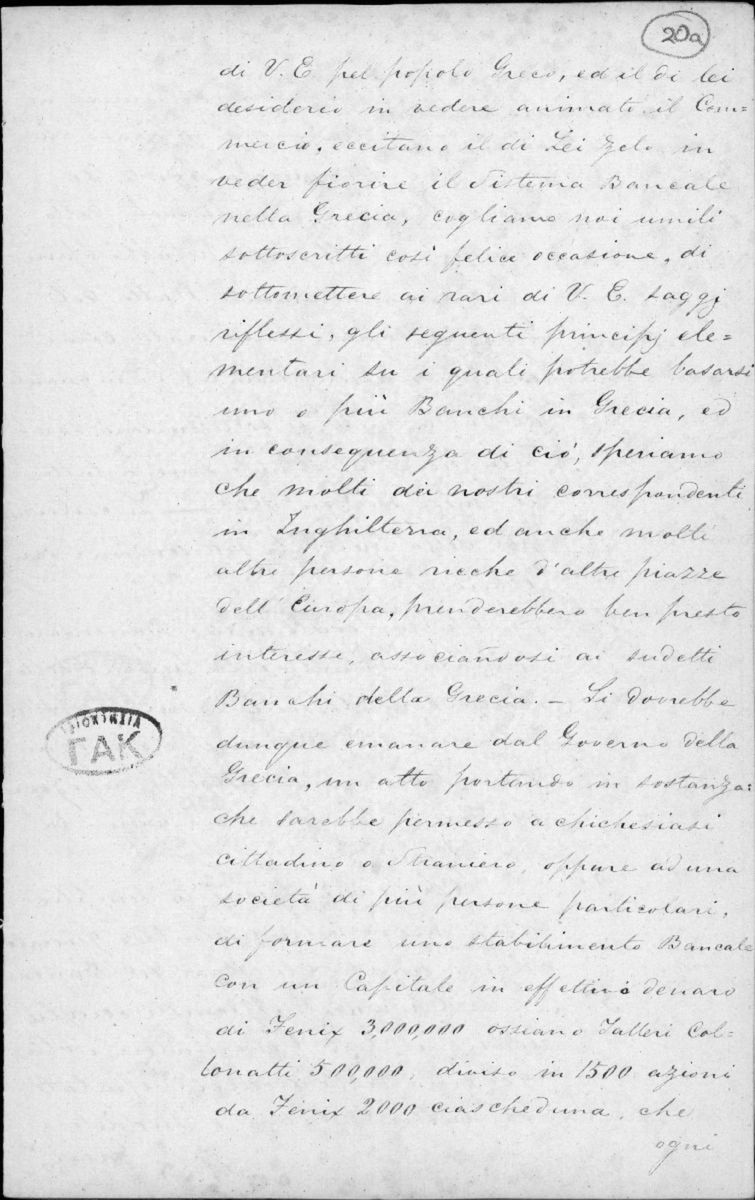 20a
di V. E. pel popolo Greco, ed il di lei
desiderio in vedere animato il Com=
mercio, eccitano il di Lei Zelo in
veder fiorire il Sistema Bancale
nella Grecia, cogliamo noi umili
sottoscritti così felice occasione, di
sottomettere ai rari di V. E. saggj
riflessi, gli seguenti principj ele=
mentari su i quali potrebbe basarsi
uno o più Banchi in Grecia, ed
in conseguenza di ciò, speriamo
che molti dei nostri correspondenti
in Inghilterra, ed anche molti
altre persone ricche d'altre piazze
dell' Europa, prenderebbero ben presto
interesse, associandosi ai sudetti
Banchi della Grecia. — Si dovrebbe
dunque emanare dal Governo della
Grecia, un atto portando in sostanza:
che sarebbe permesso a chichesiasi
cittadino o Straniero, oppure ad una
società di più persone particolari,
di formare uno stabilimento Bancale
con un Capitale in effettivo denaro
di Fenix 3,000,000 ossiano Talleri Col=
lonatti 500,000, diviso in 1500 azioni
da Fenix 2000 ciascheduna, che
ogni
ΓΑΚ